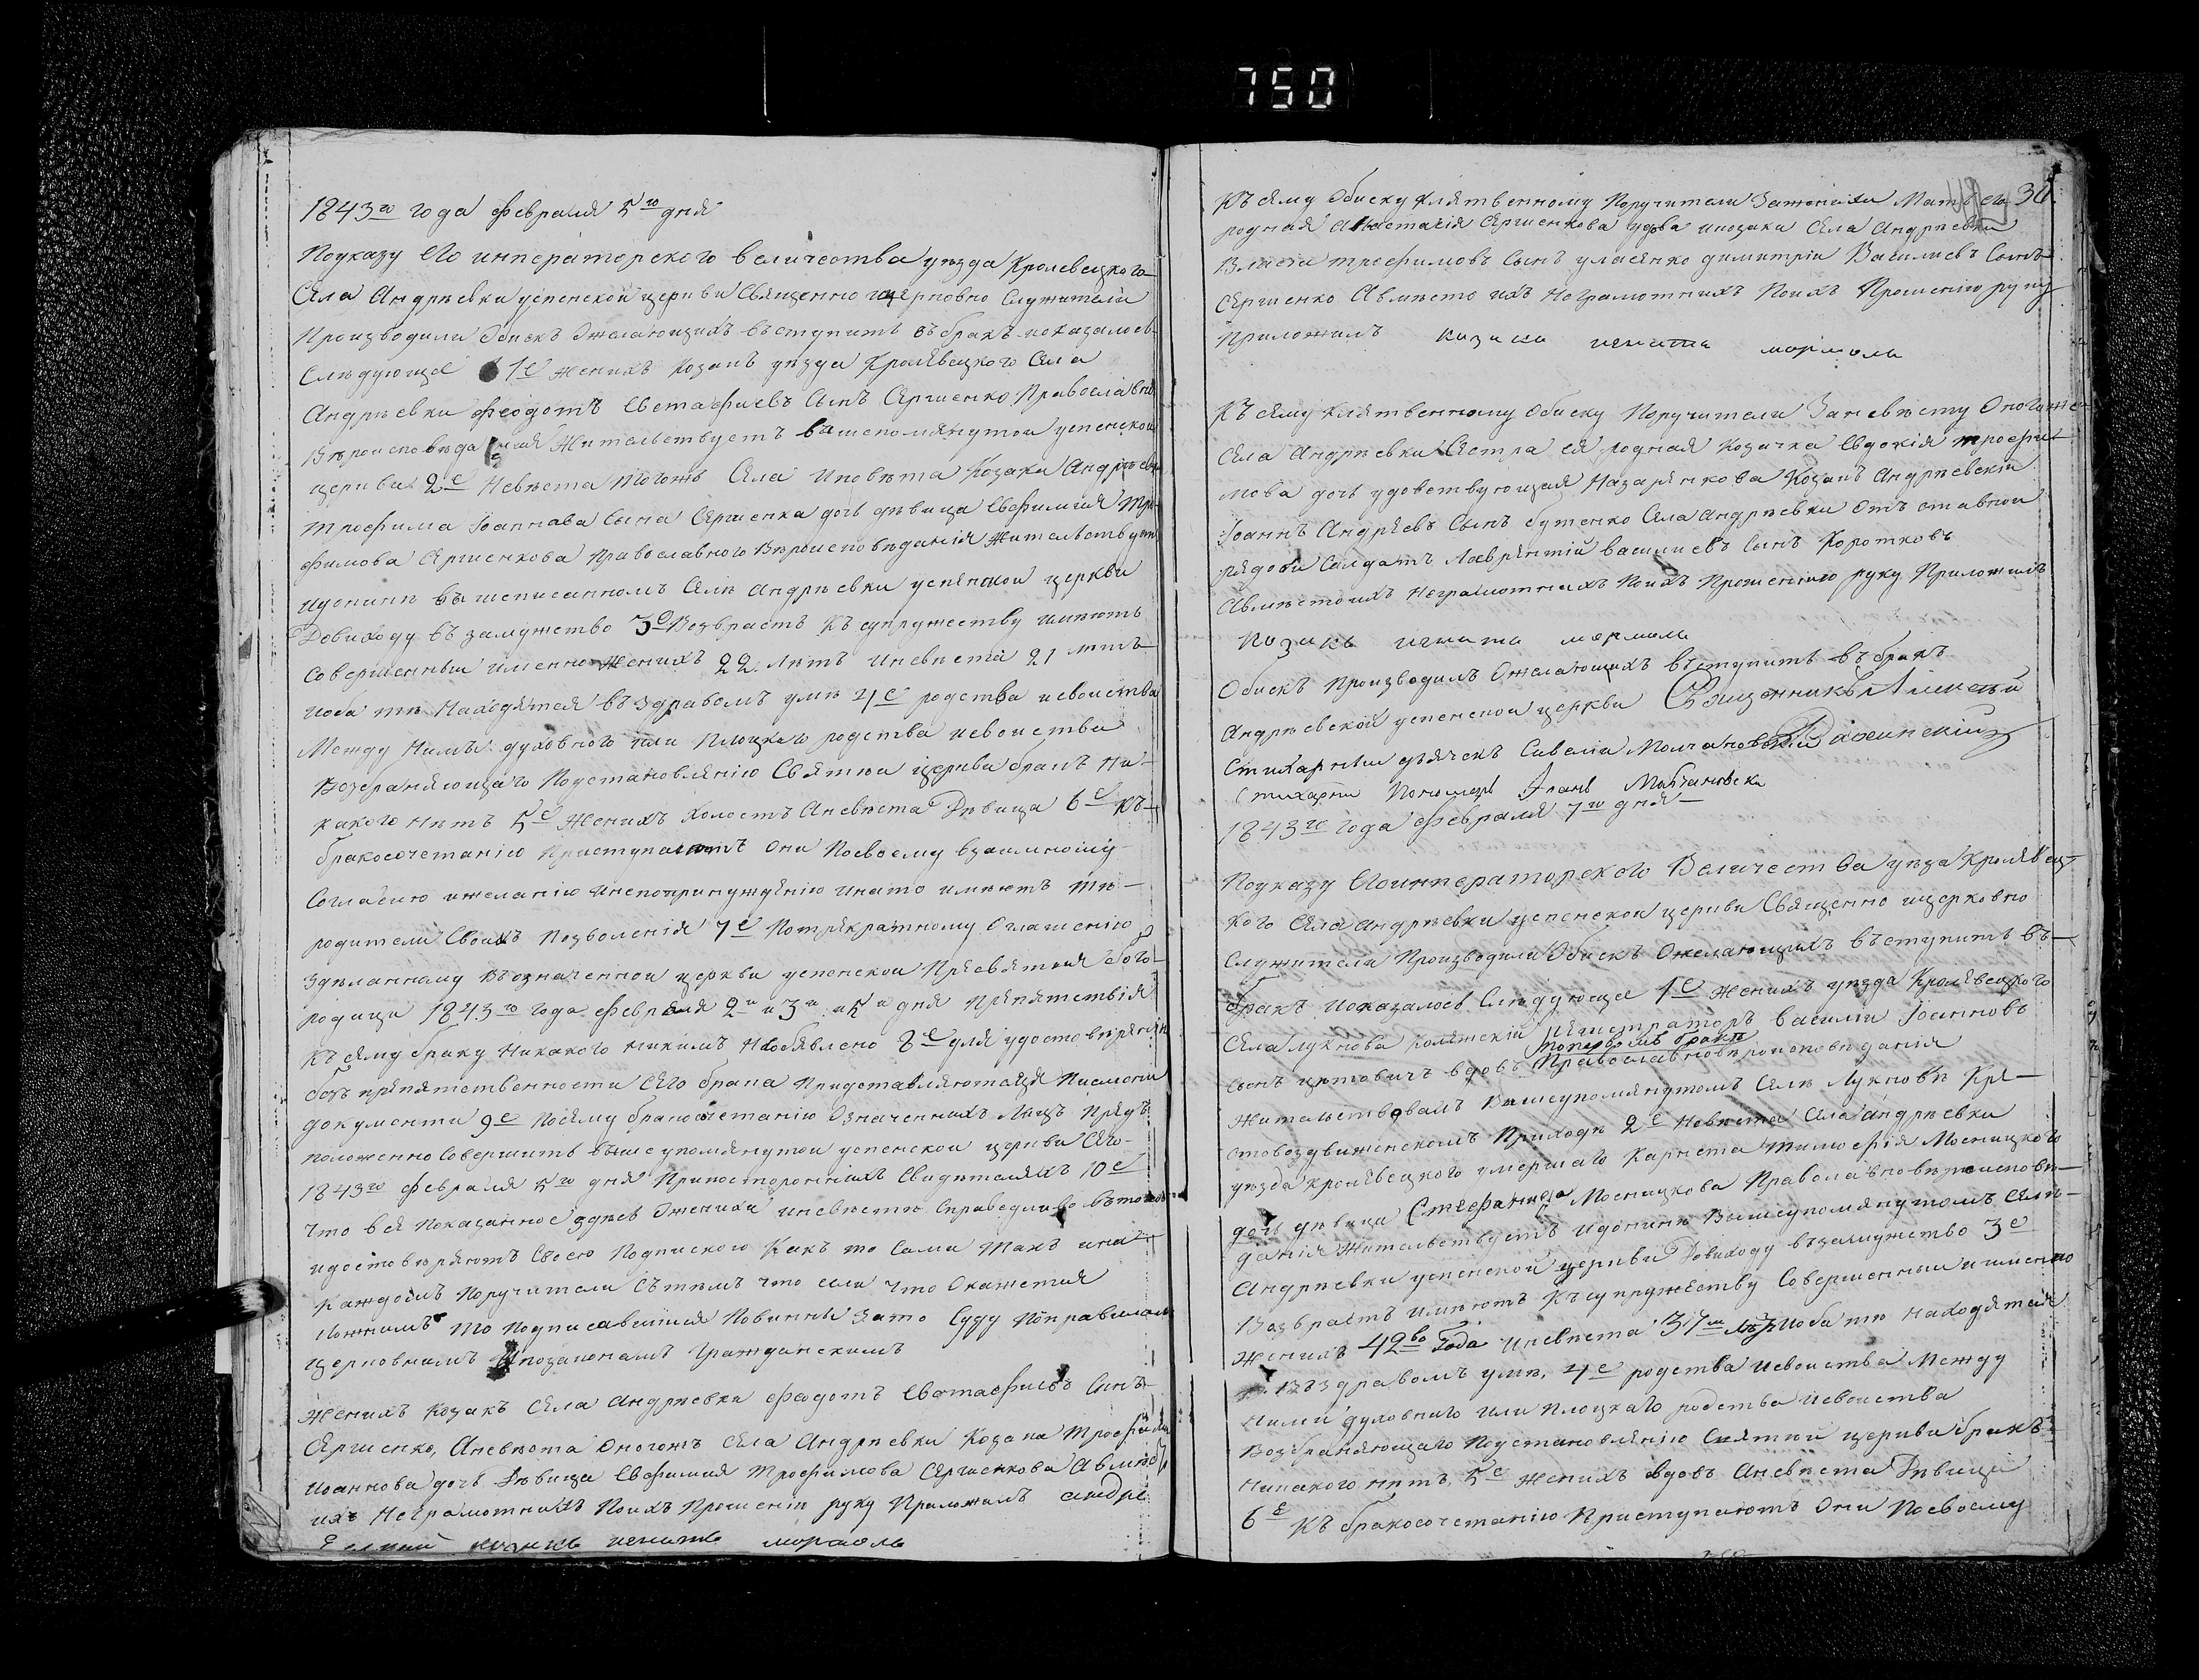 750
1843го года февраля 5го дня
Поуказу Его императорского величества уезда Кролевецкого
Села Андрѣевки успенской церкви Священно ицерковно Служители
Производили Обискъ Ожелающихъ вступить въ бракъ показалось
Следующее 1е Женихъ Козакъ уезда Кролевецкого Села
Андрѣевки Феодотъ Евстафиевъ Сынъ Сергиенко Православно
Вѣроисповѣдания Жительствуетъ вишепомянутои успенской
церкви 2е Невѣста тогожъ Села Иповѣта Козака Андрѣевки
Трофима Иоаннова Сына Сергиенка дочь дѣвица Евфимия Тро-
фимова Сергиенкова Православного Вѣроисповѣдания Жительствуетъ
идонинѣ вышеписанномъ Селѣ Андрѣевки успенской церкви
Довиходу въ замужество 3е Возврастъ Къ супружеству имѣютъ
Совершенный именно Женихъ 22 Лѣтъ Иневѣста 21 лѣтъ
Иоба тѣ Находятся въ здравомъ умѣ 4е родства исвоиства
Между Ними духовного или Плоцкаго родства исвоиства
Возбраняющаго Поустановлению Святыя церкви бракъ Ни-
какого Нѣтъ 5е Женихъ Холостъ Аневѣста Дѣвица 6е Къ
бракосочетанию Приступаютъ Они Посвоему взаимному
Согласию ижеланию инепопринуждению инато имѣютъ тѣ
родители Своихъ Позволения 7е Потрекратному Оглашению
Здѣланному Въозначенной церкви успенской Пресвятыя бого-
родици 1843го года февраля 2и и 3и и 5и дня Препятствия
Къ сему браку Никакого никимъ Необявлено 8е для удостоверения
безъ препятственности Сего брака Придставляютца Писмении
документи 9е Посему бракосочетанию Означенныхъ Лицъ Предъ
положенно Совершить вышеупомянутой успенской церкви Сего
1843го февраля 5го дня Припосторонныхъ Свидѣтеляхъ 10е
Что вся Показанное здѣсь Оженихи иневѣсти Справедливо вътомъ
идостовѣряютъ Своею Подпискою Какъ то Сами Такъ ина
Каждомъ Поручители Сътѣмъ что если что Окажется
Ложнимъ То подписавшияся Повинны Зато Суду Поправиламъ
Церковнымъ Ипозаконамъ Гражданскимъ
Женихъ Козакъ Села Андрѣевки Феодотъ Евстафиевъ Синъ
Сергиенко, Аневѣста Оногожъ Села Андрѣевки Козака Трофима
Иоаннова дочь Дѣвица Евфимия Трофимова Сергиенкова Авмѣсто
ихъ Неграмотныхъ Поихъ Прошению руку Приложилъ андре
евский козакъ игната мормоль
Къ сему Обиску Клятвенному Поручители Зажениха Мать его 30
родная Анастасия Сергиенкова удова икозаки Села Андрѣевки
Власъ трофимовъ Сынъ уласенко димитрий Василиевъ Сынъ
Сергиенко Авмѣсто ихъ Неграмотныхъ Поихъ Прошению руку
Приложилъ козакъ игната мормоль
Къ сему Клятвенному Обиску Поручители Заневѣсту Оногожъ
Села Андрѣевки Сестра ея родная Козачка Евдокия трофи-
мова дочь удовствующая Назаренкова Козакъ Андрѣевский
Иоаннъ Андреевъ Сынъ бутенко Села Андрѣевки Отъ ставной
рядовой Солдатъ Лаврентий василиевъ Сынъ Коротковъ
Авмѣсто ихъ Неграмотныхъ Поихъ Прошению руку Приложилъ
козакъ игната мормоль
Обискъ Производилъ Ожелающихъ вступить въ бракъ
Андрѣевской успенской церкви Священникъ Алексѣй
Стихарный дьячекъ Савелий Молчановский
Стихарни Пономарь Иоанъ Молчановски
1843го года Февраля 7го дня
Поуказу Егоимператорского Величества уезда Кролевец-
кого Села Андрѣевки успенской церкви Священно ицерковно
Служители Производили Обискъ Ожелающихъ вступить въ
бракъ Ипоказалось Слѣдующее 1е Женихъ уезда Кролевецкого
Села Лукнова Колежский регистраторъ василий Иоанновъ
поперволъ бракѣ
Сынъ вдовъ Православновѣроисповѣдания
Жительствовалъ Вышеупомянутомъ Селѣ Лукновѣ Кре-
стовоздвиженскомъ Приходѣ 2е Невѣста Села андрѣевки
уезда кролевецкого умершаго Карнета Тимофея Мосницкого
дочь дѣвица Стефанида Мосницкова Православновѣроисповѣ-
дания Жительствуетъ идонинѣ Вышеупомянутомъ Селѣ
Андрѣевки успенской церкви Довиходу възамужество 3е
Возврастъ Имѣютъ Къ супружеству Совершенный именно
Женихъ 42во Года Иневѣста 37м Лѣтъ Иоба тѣ Находятся
Въздравомъ умѣ, 4е родства исвоиства Между
Ними духовного Или плоцкаго родства исвоиства
Возбраняющаго Поустановлению Святыя церкви бракъ
Никакого нѣтъ, 5е Женихъ вдовъ Аневѣста Дѣвица
6е Къ бракосочетанию Приступаютъ Они Посвоему